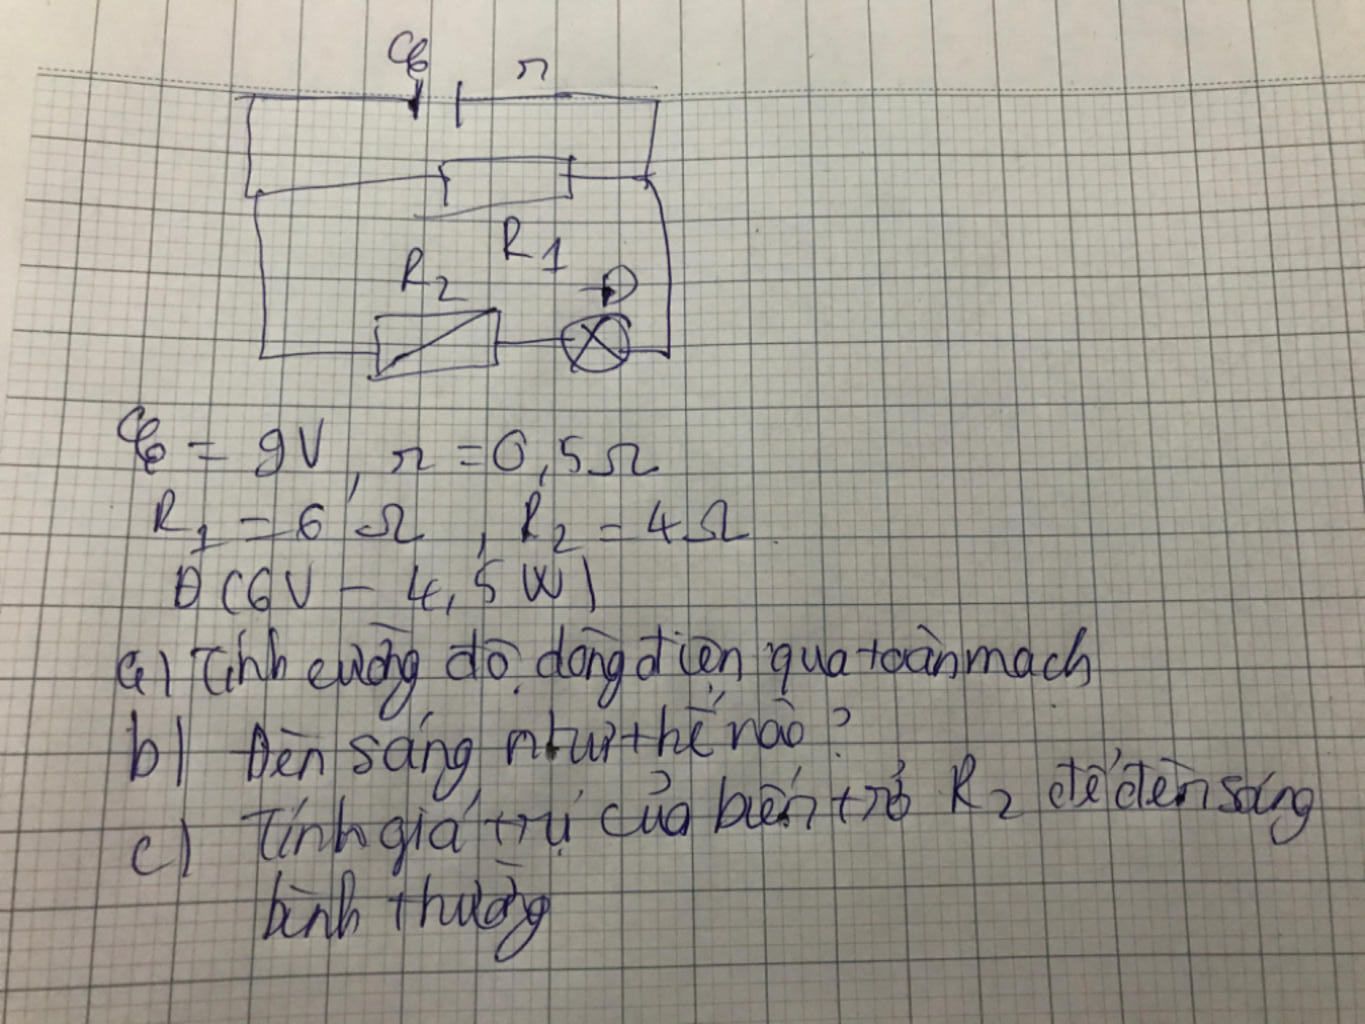 ℰ r
R1
R2 Đ
ℰ = 9V, r = 0,5Ω
R1 = 6Ω, R2 = 4Ω.
Đ (6V - 4,5W)
a) Tính cường độ dòng điện qua toàn mạch
b) Đèn sáng như thế nào?
c) Tính giá trị của biến trở R2 để đèn sáng
bình thường